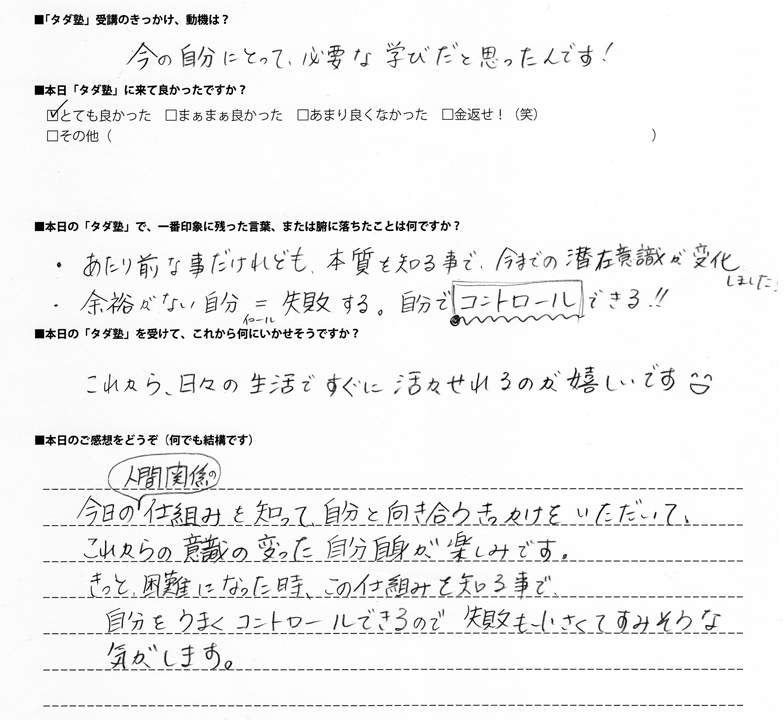 ■「タダ塾」受講のきっかけ、動機は？
今の自分にとって、必要な学びだと思ったんです！
■本日「タダ塾」に来て良かったですか？
☑とても良かった　□まぁまぁ良かった　□あまり良くなかった　□金返せ！（笑）
□その他（　　　　　　　　　　　　　　　　　　　　　　）
■本日の「タダ塾」で、一番印象に残った言葉、または腑に落ちたことは何ですか？
・あたり前な事だけれども、本質を知る事で、今までの潜在意識が変化
しました！
・余裕がない自分＝失敗する。自分でコントロールできる!!
イコール
■本日の「タダ塾」を受けて、これから何にいかせそうですか？
これから、日々の生活ですぐに活かせれるのが嬉しいです
■本日のご感想をどうぞ（何でも結構です）
人間関係の
今日の仕組みを知って、自分と向き合うきっかけをいただいて、
これからの意識の変った自分自身が楽しみです。
きっと、困難になった時、この仕組みを知る事で、
自分をうまくコントロールできるので失敗も小さくてすみそうな
気がします。